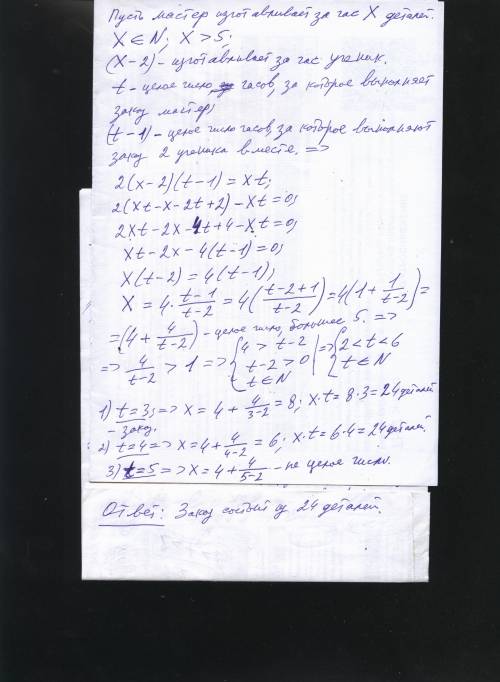 Пусть мастер изготавливает за час X деталей.
X ∈ N; X > 5;
(X-2) - изготавливает за час ученик.
t - целое число часов, за которое выполняет
заказ мастер;
(t-1) - целое число часов, за которое выполняют
заказ 2 ученика вместе. =>
2(x-2)(t-1) = xt;
2(xt-x-2t+2)-xt=0;
2xt-2x-4t+4-xt=0;
xt-2x-4(t-1)=0;
x(t-2)=4(t-1);
X = 4·\frac{t-1}{t-2} = 4(\frac{t-2+1}{t-2}) = 4(1+\frac{1}{t-2}) =
= (4+\frac{4}{t-2}) - целое число, большее 5. =>
=> \frac{4}{t-2} > 1 => { 4 > t-2 | => { 2 < t < 6
t-2 > 0 t ∈ N
t ∈ N
1) t=3; => x = 4 + \frac{4}{3-2} = 8; x·t = 8·3 = 24 деталей
- заказ.
2) t=4 => x = 4 + \frac{4}{4-2} = 6; x·t = 6·4 = 24 деталей.
3) t=5 => x = 4 + \frac{4}{5-2} - не целое число.
Ответ: Заказ состоит из 24 деталей.